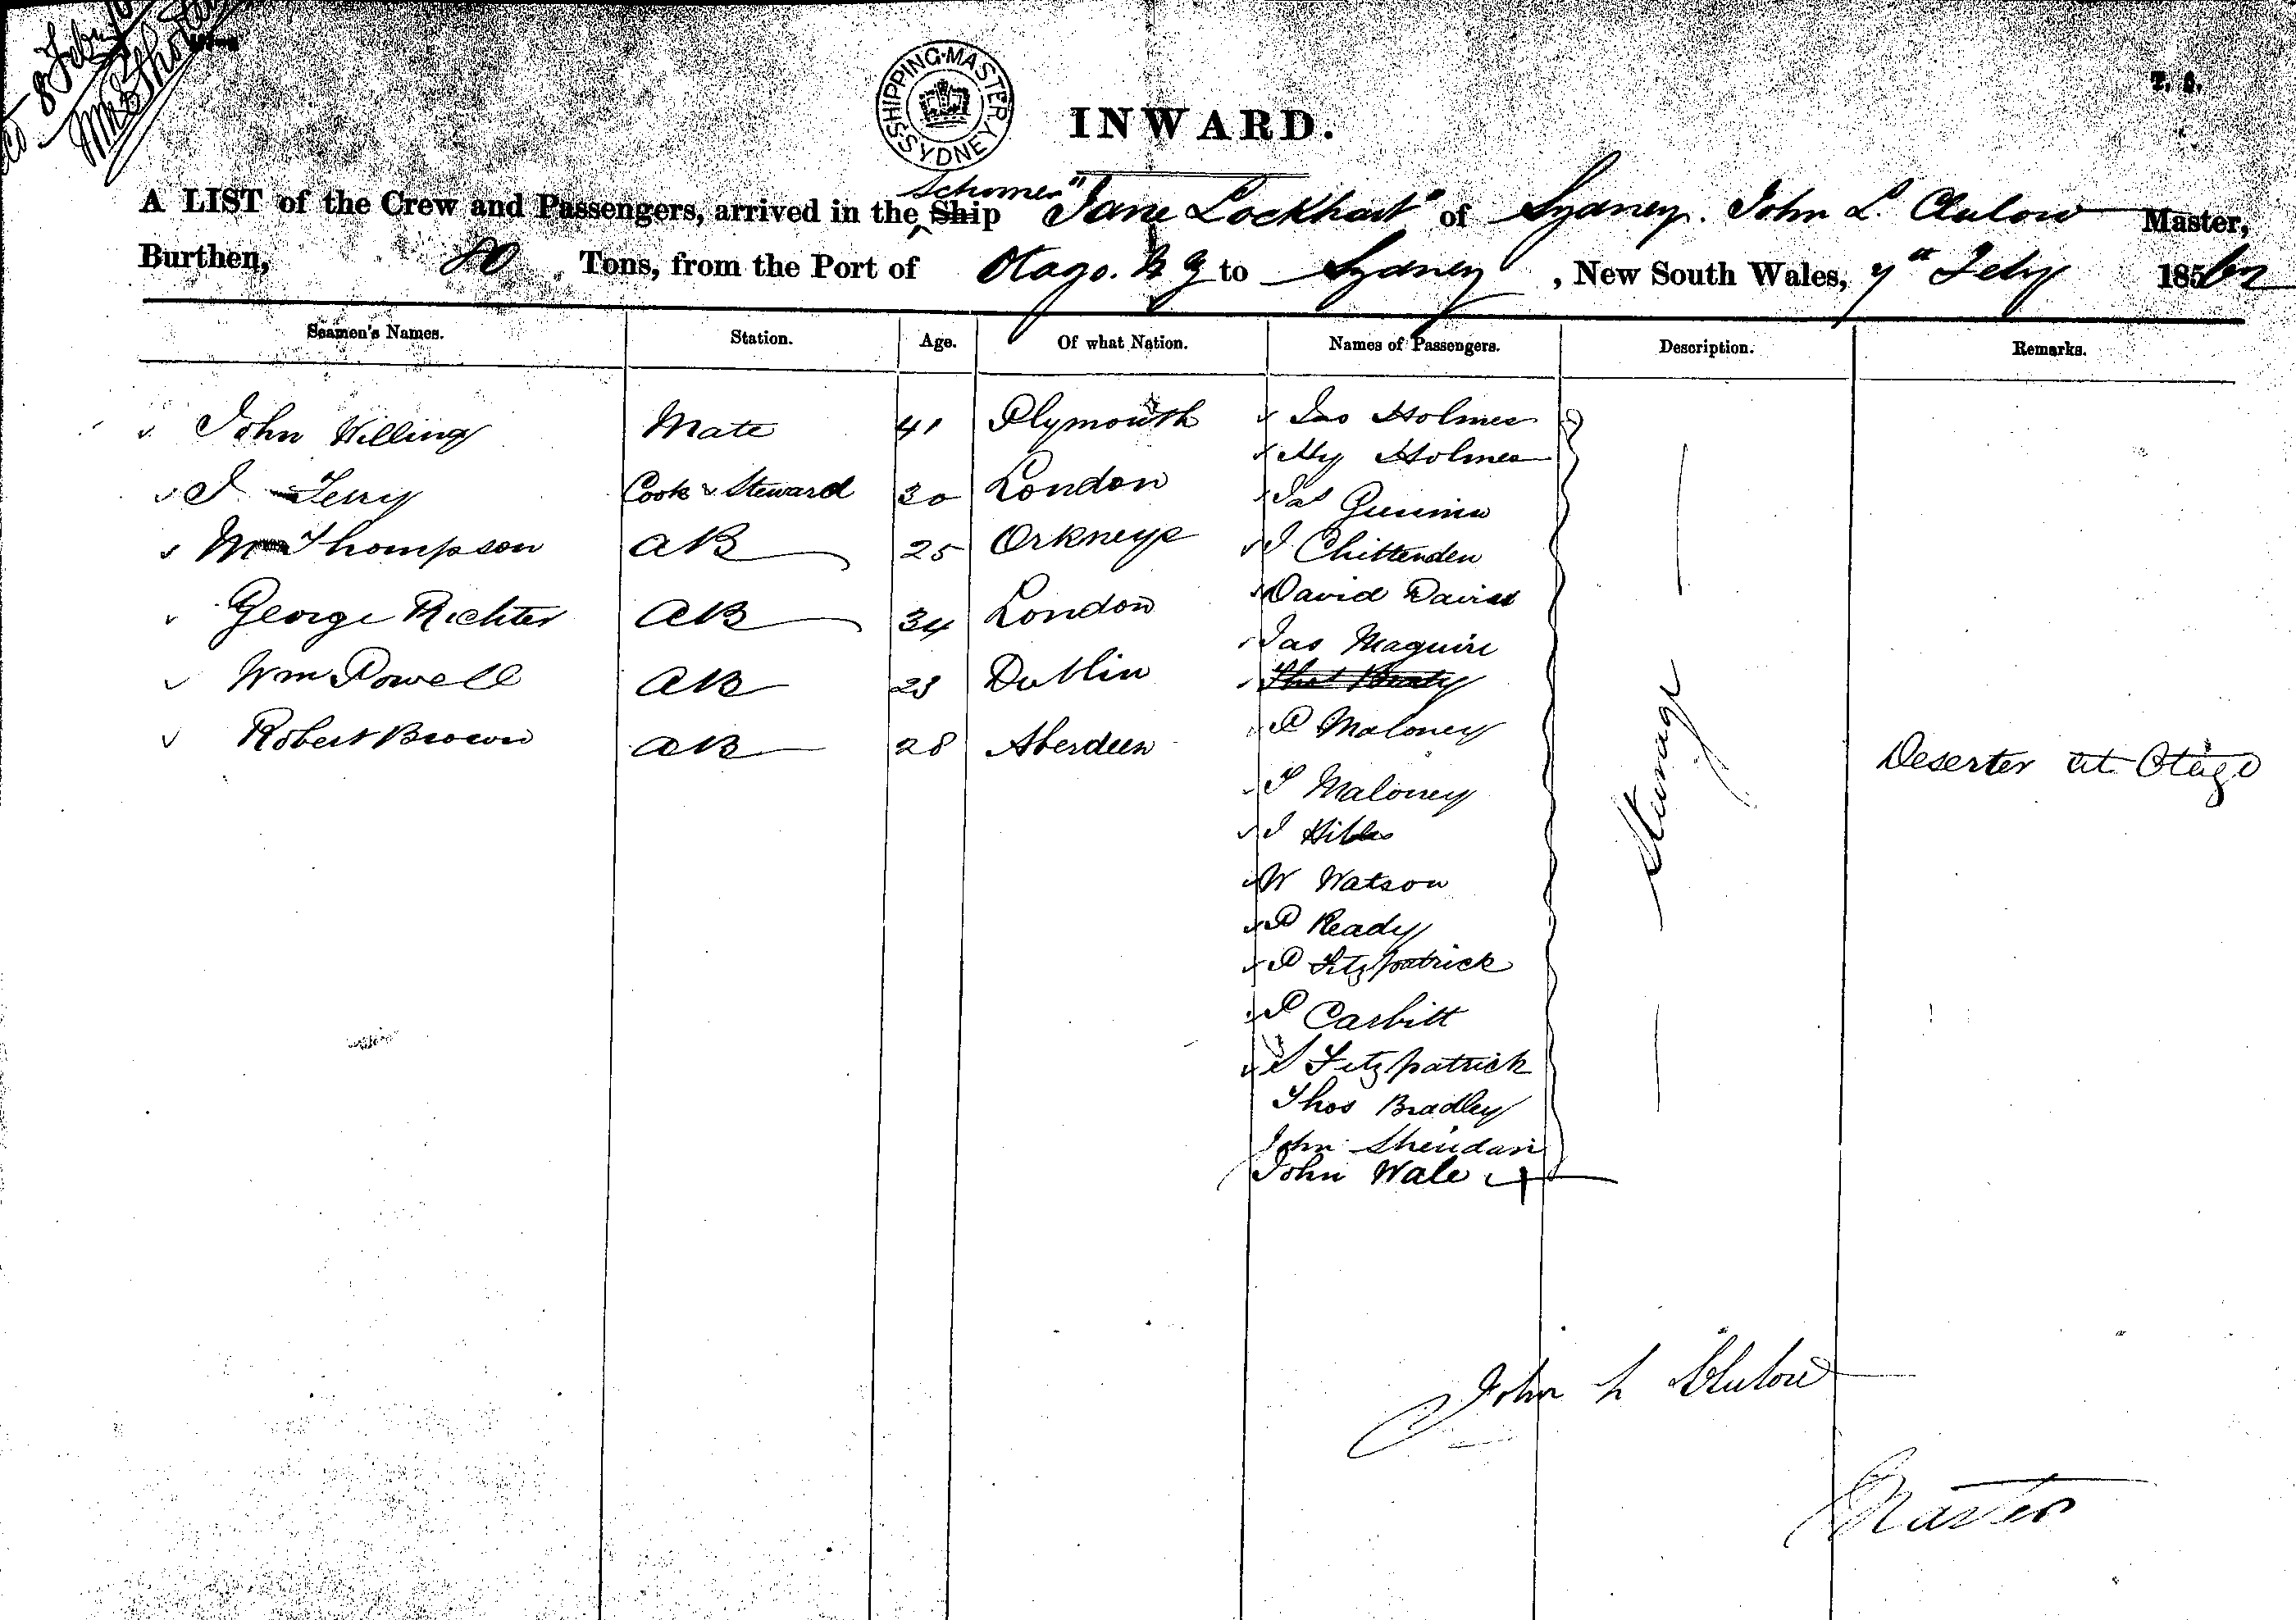 8 Feby
SHIPPING MASTER SYDNEY
INWARD.
Schooner
A LIST of the Crew and Passengers, arrived in the Ship "Jane Lockhart" of Sydney. John L. Clulow Master,
Burthen, 80 Tons, from the Port of Otago. N Z to Sydney, New South Wales, 7th Feby 1862
Seamen's Names. Station. Age. Of what Nation. Names of Passengers. Description. Remarks.
John Willing Mate 41 Plymouth Jas Holmes
Hy Holmes
J Terry Cook & Steward 30 London Jas
Wm Thompson AB 25 Orkneys J Chittenden
David Davies
George Richter AB 34 London Jas Maguire
Wm Powell AB 23 Dublin Thos
Robert Brown AB 28 Aberdeen P Maloney Deserter at Otago
Steerage
T Maloney
J Hibbs
W Watson
P Ready
P Fitzpatrick
P Carbitt
Fitzpatrick
Thos Bradley
John Sheridan
John Wale
John L Clulow
Master